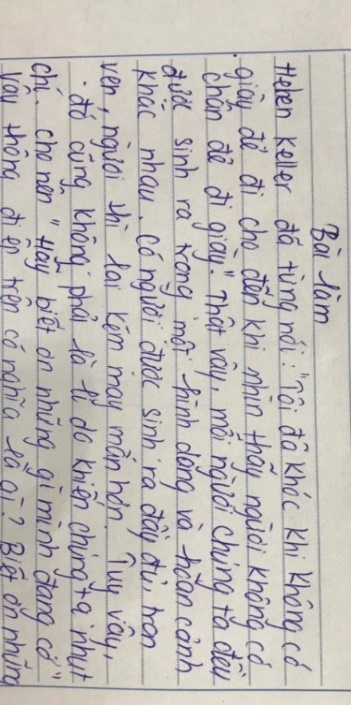 Bài làm
Helen Keller đã từng nói: "Tôi đã khóc khi không có
giày để đi cho đến khi nhìn thấy người không có
chân để đi giày." Thật vậy, mỗi người chúng ta đều
được sinh ra trong một hình dáng và hoàn cảnh
khác nhau. Có người được sinh ra đầy đủ, tròn
vẹn, người thì lại kém may mắn hơn. Tuy vậy,
đó cũng không phải là lí do khiến chúng ta nhụt
chí. Cho nên "Hãy biết ơn những gì mình đang có"
Vậy thông điệp trên có nghĩa là gì? Biết ơn những